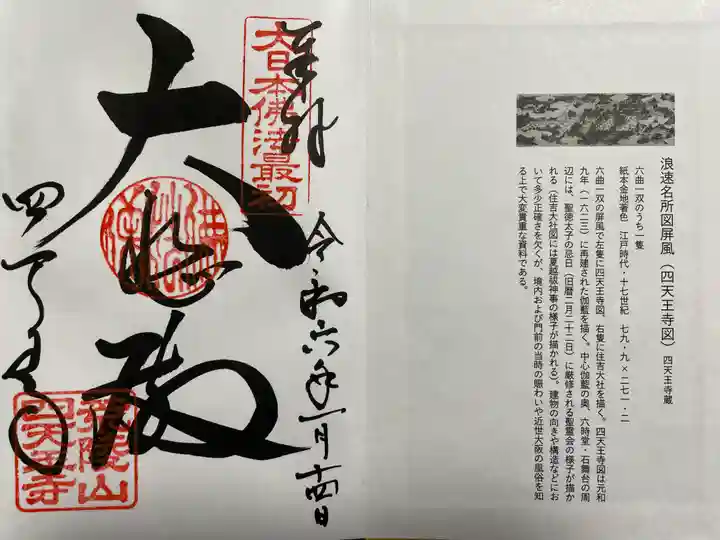 浪速名所図屏風（四天王寺図） 四天王寺蔵
六曲一双のうち一隻
紙本金地著色　江戸時代・十七世紀　七九・九×二七一・二
六曲一双の屏風で左隻に四天王寺図、右隻に住吉大社を描く。四天王寺図は元和
九年（一六二三）に再建された伽藍を描く。中心伽藍の奥、六時堂・石舞台の周
辺には、聖徳太子の忌日（旧暦二月二十二日）に厳修される聖霊会の様子が描か
れる（住吉大社図には夏越祓神事の様子が描かれる）。建物の向きや構造などにお
いて多少正確さを欠くが、境内および門前の当時の賑わいや近世大阪の風俗を知
る上で大変貴重な資料である。
奉拝
大日本佛法最初
令和六年一月十四日
大悲殿
四天王寺
荒陵山
四天王寺